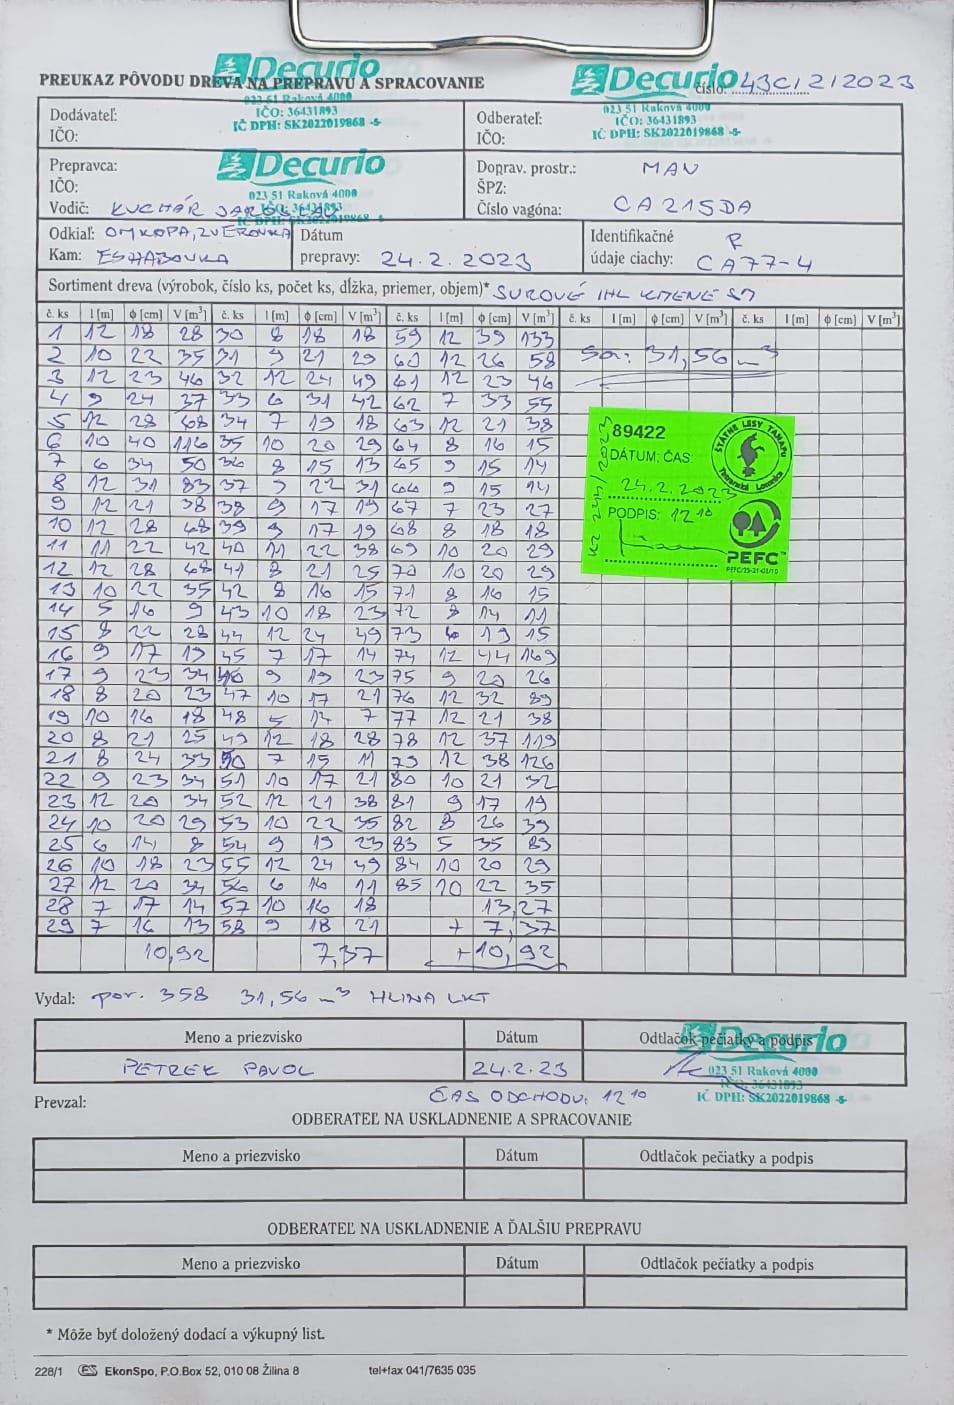 PREUKAZ PÔVODU DREVA NA PREPRAVU A SPRACOVANIE
Decurio
023 51 Raková 4000
IČO: 36431893
IČ DPH: SK2022019868 -5-
Decurio
číslo: 43C/2/2023
023 51 Raková 4000
IČO: 36431893
IČ DPH: SK2022019868 -5-
Dodávateľ:
IČO:
Odberateľ:
IČO:
Prepravca:
IČO:
Decurio
023 51 Raková 4000
Vodič: KUCHÁR JAROSLAV
Doprav. prostr.: MAN
ŠPZ:
Číslo vagóna: CA215DA
Odkiaľ: OMKOPA, ZVEROVKA
Kam: ESHABOVKA
Dátum
prepravy: 24.2.2023
Identifikačné R
údaje ciachy: CA77-4
Sortiment dreva (výrobok, číslo ks, počet ks, dĺžka, priemer, objem)* SUROVÉ IHL KMENE
č. ks l [m] ϕ [cm] V [m³] č. ks l [m] ϕ [cm] V [m³] č. ks l [m] ϕ [cm] V [m³] č. ks l [m] ϕ [cm] V [m³] č. ks l [m] ϕ [cm] V [m³]
1 12 18 28 30 8 18 18 59 12 39 133
2 10 22 35 31 9 21 29 60 12 26 58 Sa: 31,56 m³
3 12 23 46 32 12 24 49 61 12 23 46
4 9 24 37 33 6 31 42 62 7 33 55
5 12 28 68 34 7 19 18 63 12 21 38
6 10 40 116 35 10 20 29 64 8 16 15
7 6 34 50 36 8 15 13 65 9 15 14
8 12 31 83 37 9 22 31 66 9 15 14
9 12 21 38 38 9 17 19 67 7 23 27
10 12 28 68 39 9 17 19 68 8 18 18
11 11 22 42 40 11 22 38 69 10 20 29
12 12 28 68 41 8 21 25 70 10 20 29
13 10 22 35 42 8 16 15 71 8 16 15
14 5 16 9 43 10 18 23 72 8 14 11
15 8 22 28 44 12 24 49 73 6 19 15
16 9 17 19 45 7 17 14 74 12 44 169
17 9 23 34 46 9 19 23 75 9 20 26
18 8 20 23 47 10 17 21 76 12 32 89
19 10 16 18 48 5 14 7 77 12 21 38
20 8 21 25 49 12 18 28 78 12 37 119
21 8 24 33 50 7 15 11 79 12 38 126
22 9 23 34 51 10 17 21 80 10 21 32
23 12 20 34 52 12 21 38 81 9 17 19
24 10 20 29 53 10 22 35 82 8 26 39
25 6 14 8 54 9 19 23 83 5 35 89
26 10 18 23 55 12 24 49 84 10 20 29
27 12 20 34 56 6 16 11 85 10 22 35
28 7 17 14 57 10 16 18 13,27
29 7 16 13 58 9 18 21 + 7,37
10,92 7,37 +10,92
89422
ŠTÁTNE LESY TANAPU
Tatranská Lomnica
DÁTUM, ČAS:
24.2.2023
PODPIS: 12 10
PEFC™
Vydal: por. 358 31,56 m³ HLINA LKT
Meno a priezvisko Dátum Odtlačok pečiatky a podpis
Decurio
PETREK PAVOL 24.2.23
023 51 Raková 4000
IČO: 36431893
IČ DPH: SK2022019868 -5-
Prevzal: ČAS ODCHODU: 12 10
ODBERATEĽ NA USKLADNENIE A SPRACOVANIE
Meno a priezvisko Dátum Odtlačok pečiatky a podpis
ODBERATEĽ NA USKLADNENIE A ĎALŠIU PREPRAVU
Meno a priezvisko Dátum Odtlačok pečiatky a podpis
* Môže byť doložený dodací a výkupný list.
228/1 ES EkonSpo, P.O.Box 52, 010 08 Žilina 8 tel+fax 041/7635 035